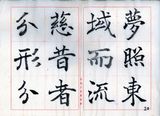 夢照東
域而流
慈昔者
分形分
20